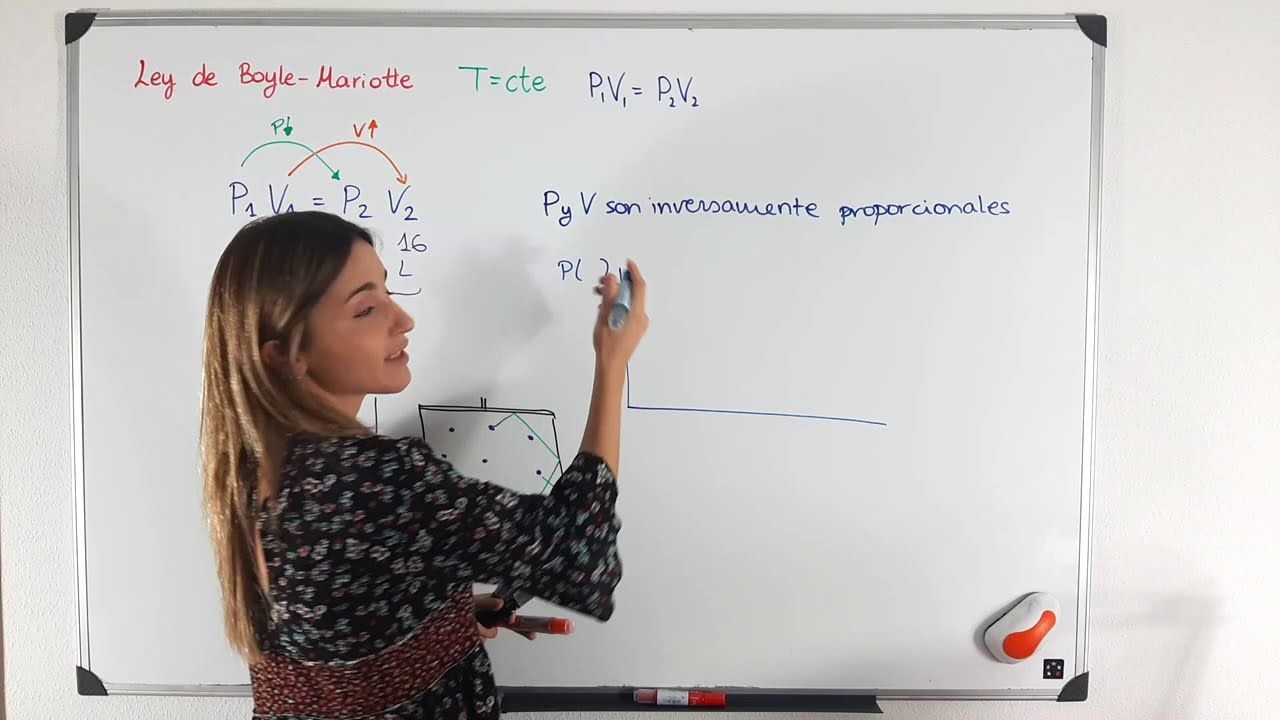 Ley de Boyle-Mariotte T=cte P₁V₁ = P₂V₂
P↓ V↑
P₁ V₁ = P₂ V₂
P y V son inversamente proporcionales
16
L
P( )